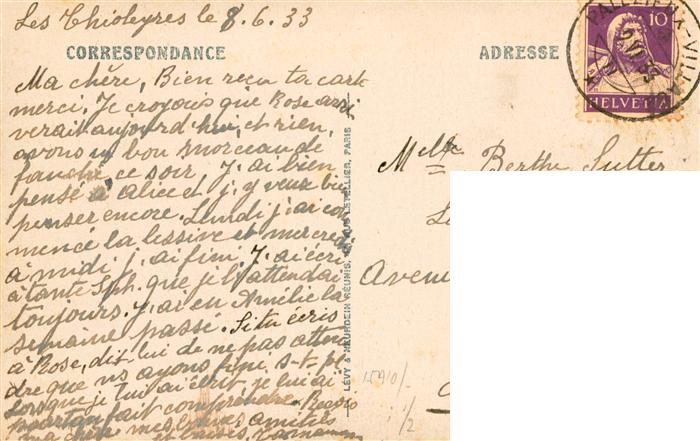 Les Thioleyres le 8.6.33
CORRESPONDANCE
ADRESSE
Ma chère, Bien reçu ta carte
merci. Je croyais que Rose arri
verait aujourd'hui, et rien,
avons un bon morceau de
fauché ce soir. J'ai bien
pensé à Alice et j'y veux bien
penser encore. Lundi j'ai com
mencé la lessive et mercredi
à midi j'ai fini. J'ai écri
à tante Sph. que je l'attendai
toujours. J'ai eu Amélie la
semaine passé. Si tu écris
à Rose, dit lui de ne pas atten
dre que ns ayons fini, s-t-pl
lorsque je lui ai écrit je lui ai
pourtant fait comprendre.
ma chère mes amitiés
et baisers
LÉVY & NEURDEIN RÉUNIS, LETELLIER, PARIS
PALÉZIEUX-VILLAGE
10
HELVETIA
Melle Berthe Sutter
Aven
15910/-
1/2